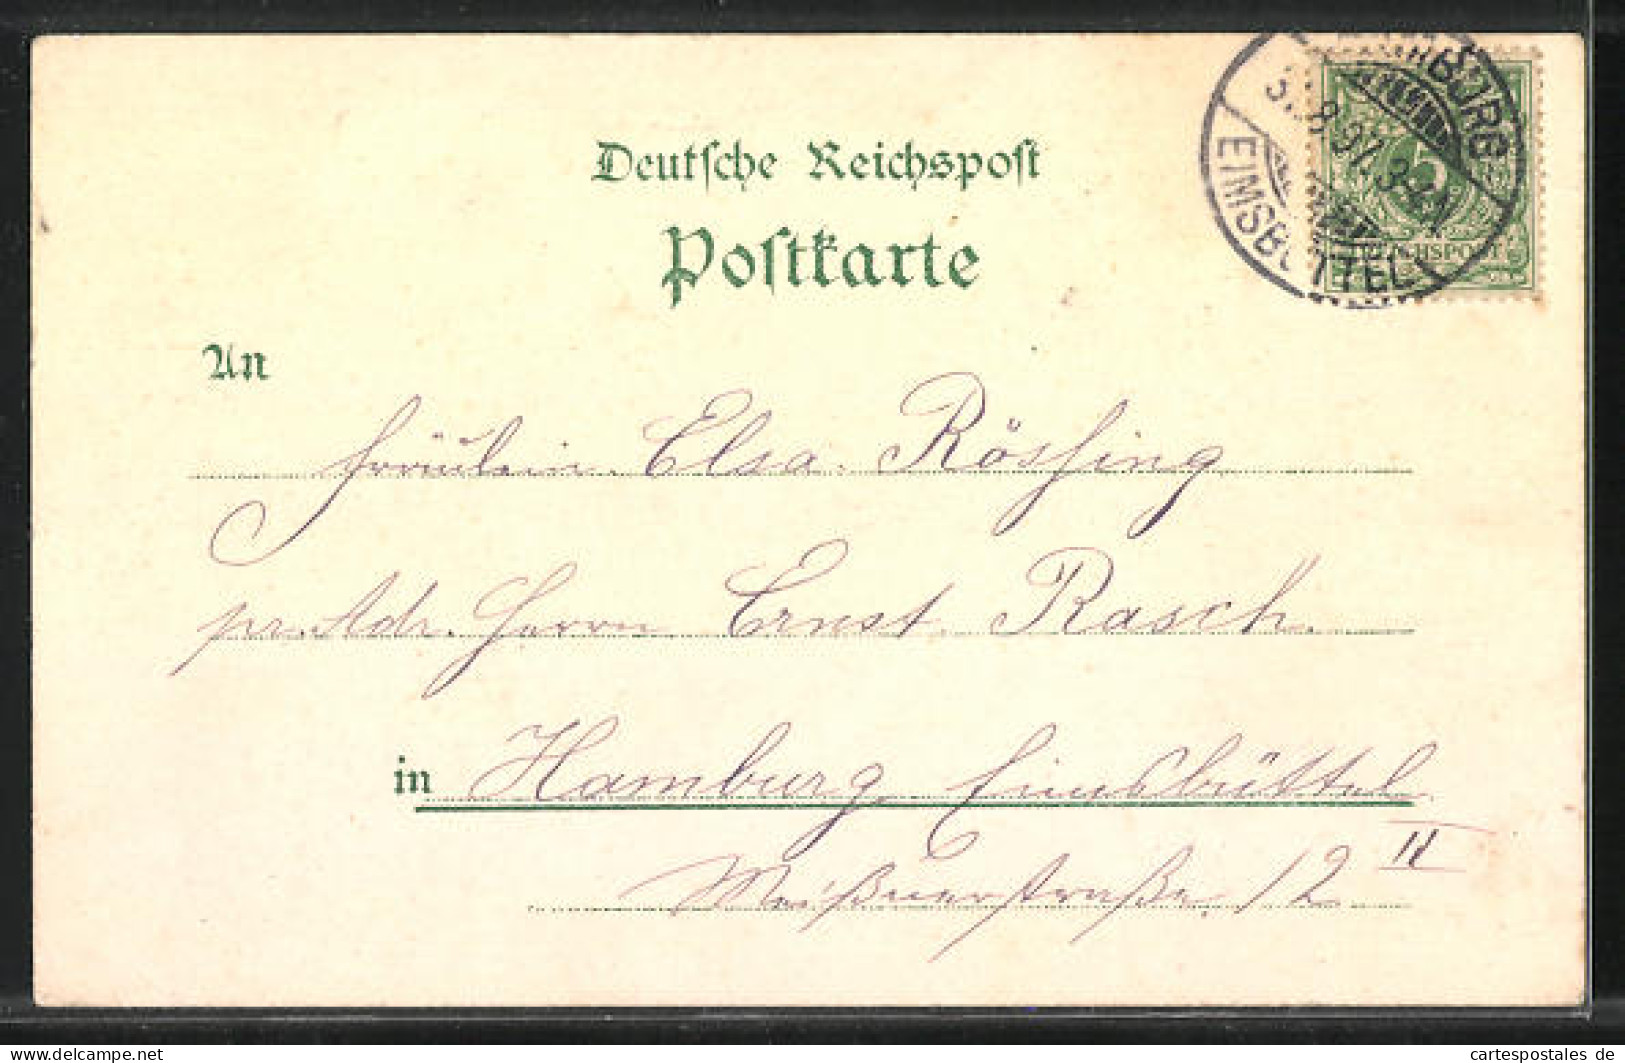 Deutsche Reichspost
Postkarte
HAMBURG
EIMSBÜTTEL
8.97. 3-4N
5
REICHSPOST
An
Fräulein Elsa Rössing
pr. Adr. Herrn Ernst Rasch.
in Hamburg Eimsbüttel
Meißnerstraße. 12 II
© cartespostales.de
cartespostales.de